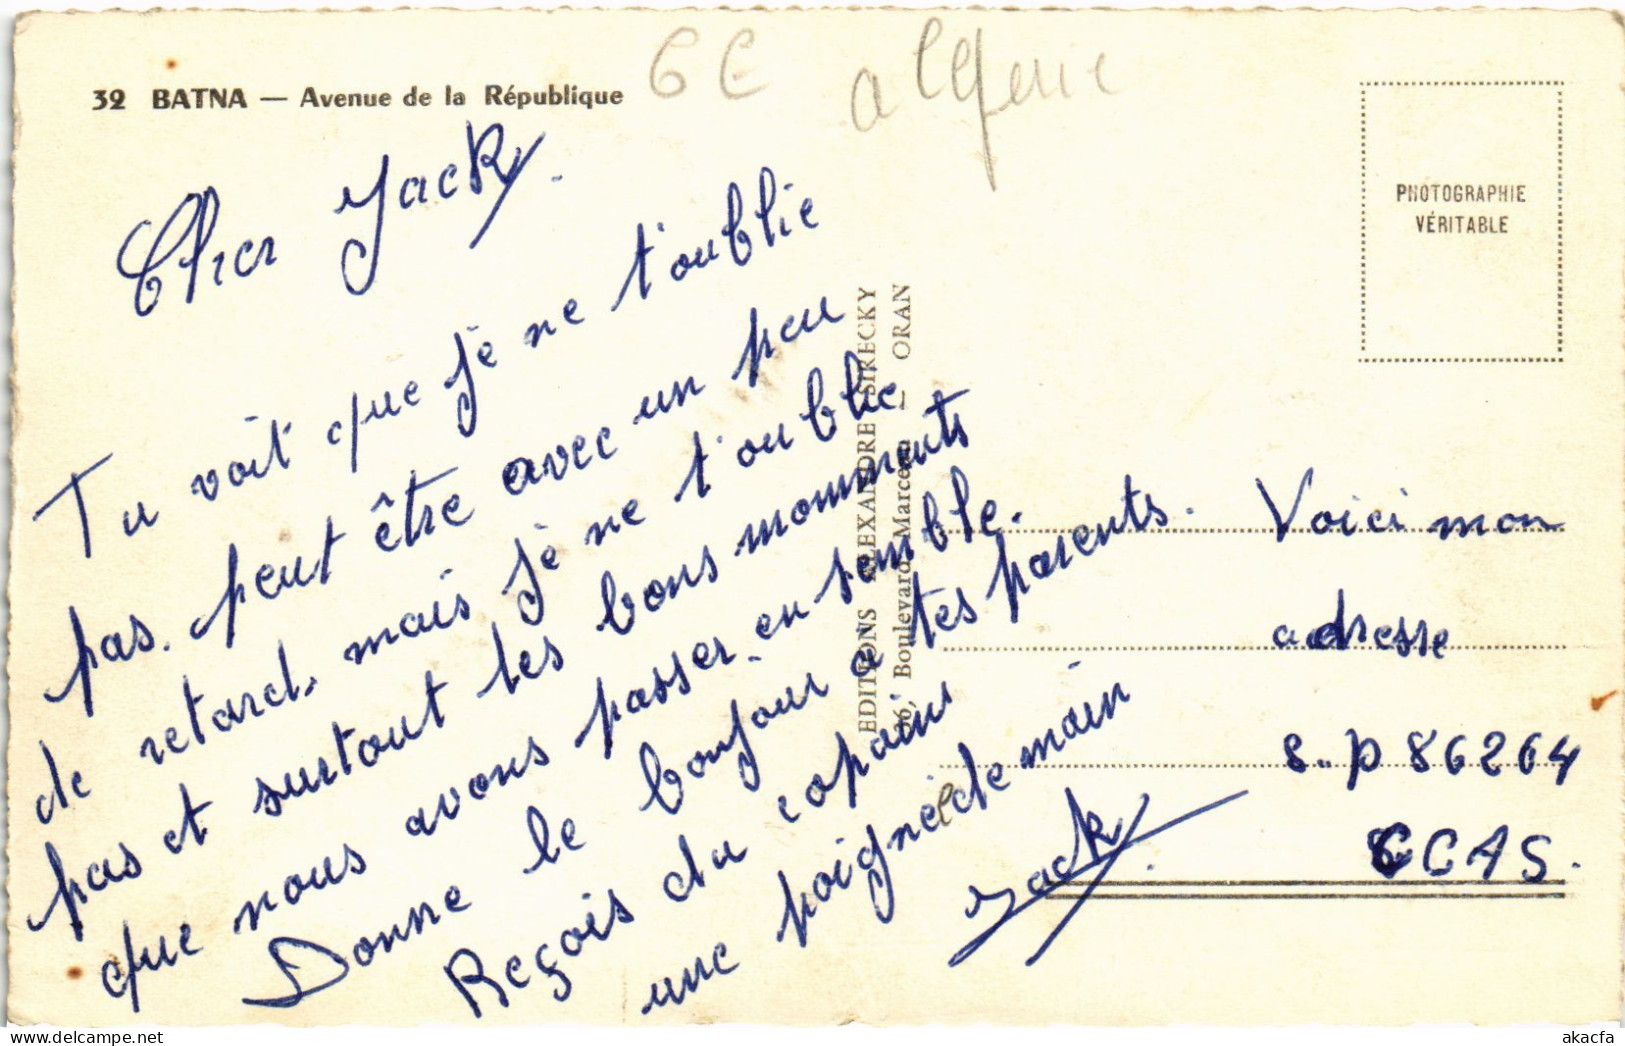 32 BATNA — Avenue de la République
6 E
algerie
PHOTOGRAPHIE
VÉRITABLE
Cher Jack.
Tu voit que je ne t'oublie
pas. peut être avec un peu
de retard, mais je ne t'oublie
pas et surtout les bons momments
que nous avons passer en semble.
Donne le bonjour a tes parents.
Reçois du copains
une poignée de main
Jack
EDITIONS ALEXANDRE SIRECKY
36, Boulevard Marceau — ORAN
Voici mon
adresse
S.P 86264
CCAS.
akacfa